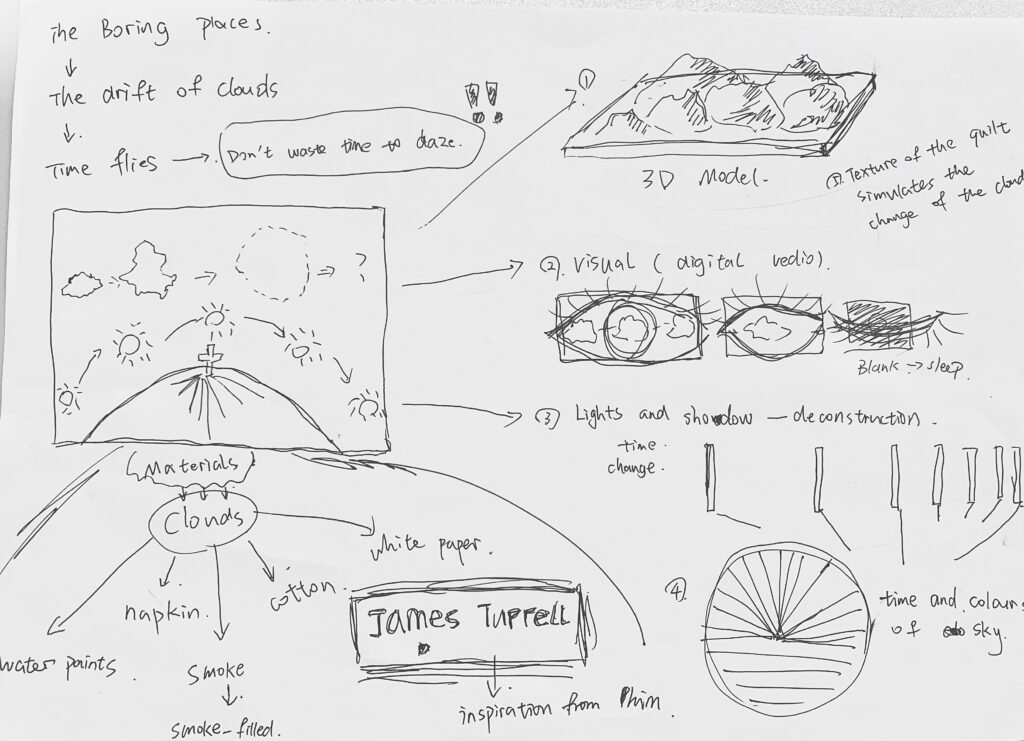 The Boring places.
The drift of clouds
Time flies
Don't waste time to daze.
!!
①
3D Model.
⑤. Texture of the quilt
simulates the
change of the cloud
②. visual ( digital vedio).
Blank → sleep.
③ Lights and shadow — deconstruction.
time
change.
?
Materials
Clouds
white paper.
cotton.
napkin.
water paints.
smoke
smoke-filled.
James Turrell
inspiration from
④.
time and colours
of sky.